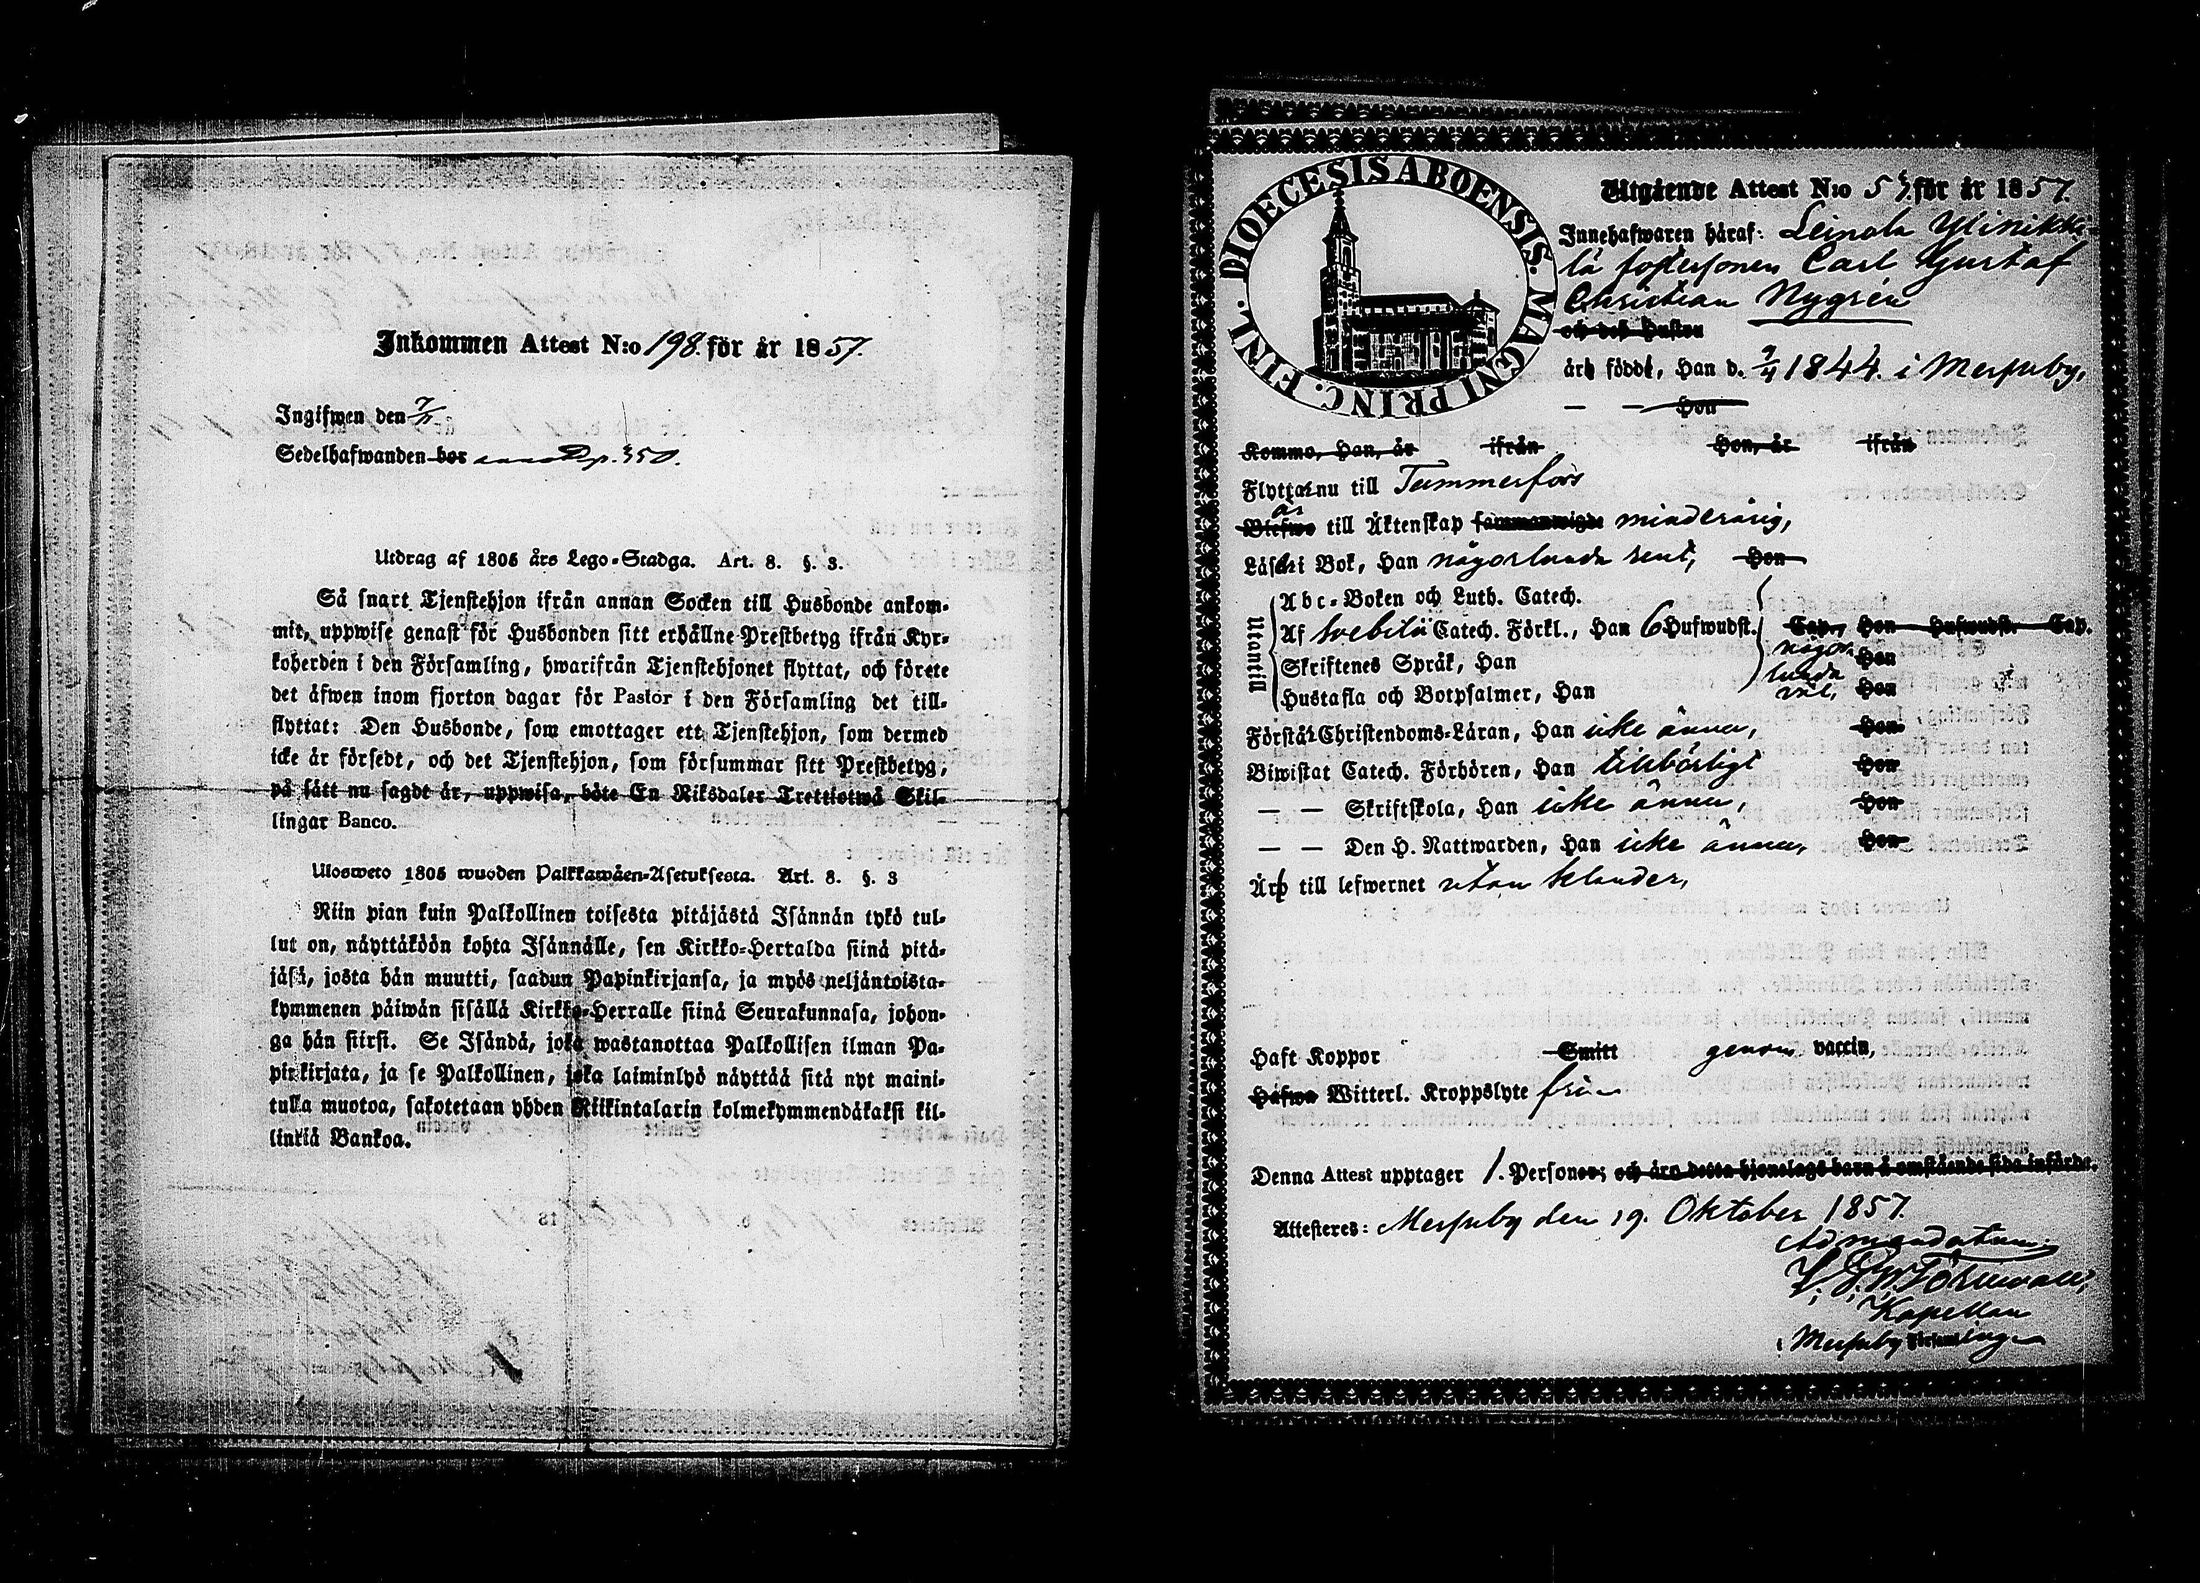 Inkommen Attest N:o 198. för år 1857.
Ingifwen den 7/11
Sedelhafwanden bor p. 350.
Utdrag af 1805 års Lego-Stadga. Art. 8. §. 3.
Så snart Tjenstehjon ifrån annan Socken till Husbonde ankom-
mit, uppwise genast för Husbonden sitt erhållne Prestbetyg ifrån Kyr-
koherden i den Församling, hwarifrån Tjenstehjonet flyttat, och förete
det äfwen inom fjorton dagar för Pastor i den Församling det till-
flyttat: Den Husbonde, som emottager ett Tjenstehjon, som dermed
icke är försedt, och det Tjenstehjon, som försummar sitt Prestbetyg,
på sätt nu sagdt är, uppwisa, böte En Riksdaler Trettiotwå Skil-
lingar Banco.
Ulosweto 1805 wuoden Palkkawäen-Asetuksesta. Art. 8. §. 3
Niin pian kuin Palkollinen toisesta pitäjästä Isännän tykö tul-
lut on, näyttäköön kohta Isännälle, sen Kirkko-Herralda siinä pitä-
jäsä, josta hän muutti, saadun Papinkirjansa, ja myös neljäntoista-
kymmenen päiwän sisällä Kirkko-Herralle siinä Seurakunnasa, johon-
ga hän siirsi. Se Isändä, joka wastanottaa Palkollisen ilman Pa-
pinkirjata, ja se Palkollinen, joka laiminlyö näyttää sitä nyt maini-
tulla muotoa, sakotetaan yhden Riikintalarin kolmekymmendäkaksi kil-
linkiä Bankoa.
DIOECESIS ABOENSIS. MAGNI PRINC. FINL.
Utgående Attest N:o 53 för år 1857.
Innehafwaren häraf: Leinola Ylinikki-
lä fostersonen Carl Gustaf
Christian Nygrén
och des Hustru
äro födde, Han d. 9/4 1844. i Messuby,
— — Hon
Kommo, Han, år ifrån Hon, år ifrån
Flyttar nu till Tammerfors
är
Blefwo till Äktenskap sammanwigde minderårig,
Läser i Bok, Han någorlunda rent, Hon
Utantill
Abc-Boken och Luth. Catech.
Af Svebilii Catech. Förkl., Han 6 Hufwudst. Cap., Hon Hufwudst. Cap.
Skriftenes Språk, Han någor- Hon
lunda
Hustafla och Botpsalmer, Han väl, Hon
Förstår Christendoms-Läran, Han icke ännu, Hon
Biwistat Catech. Förhören, Han tillbörligt Hon
— — Skriftskola, Han icke ännu, Hon
— — Den H. Nattwarden, Han icke ännu, Hon
Är till lefwernet utan klander,
Haft Koppor Smitt genom vaccin,
Hafwa Witterl. Kroppslyte fri
Denna Attest upptager 1. Personer; och äro detta hjonelags barn å omstående sida införde.
Attesteres: Messuby den 19. Oktober 1857.
Ad mandatum:
Kapellan
i Messuby Församling